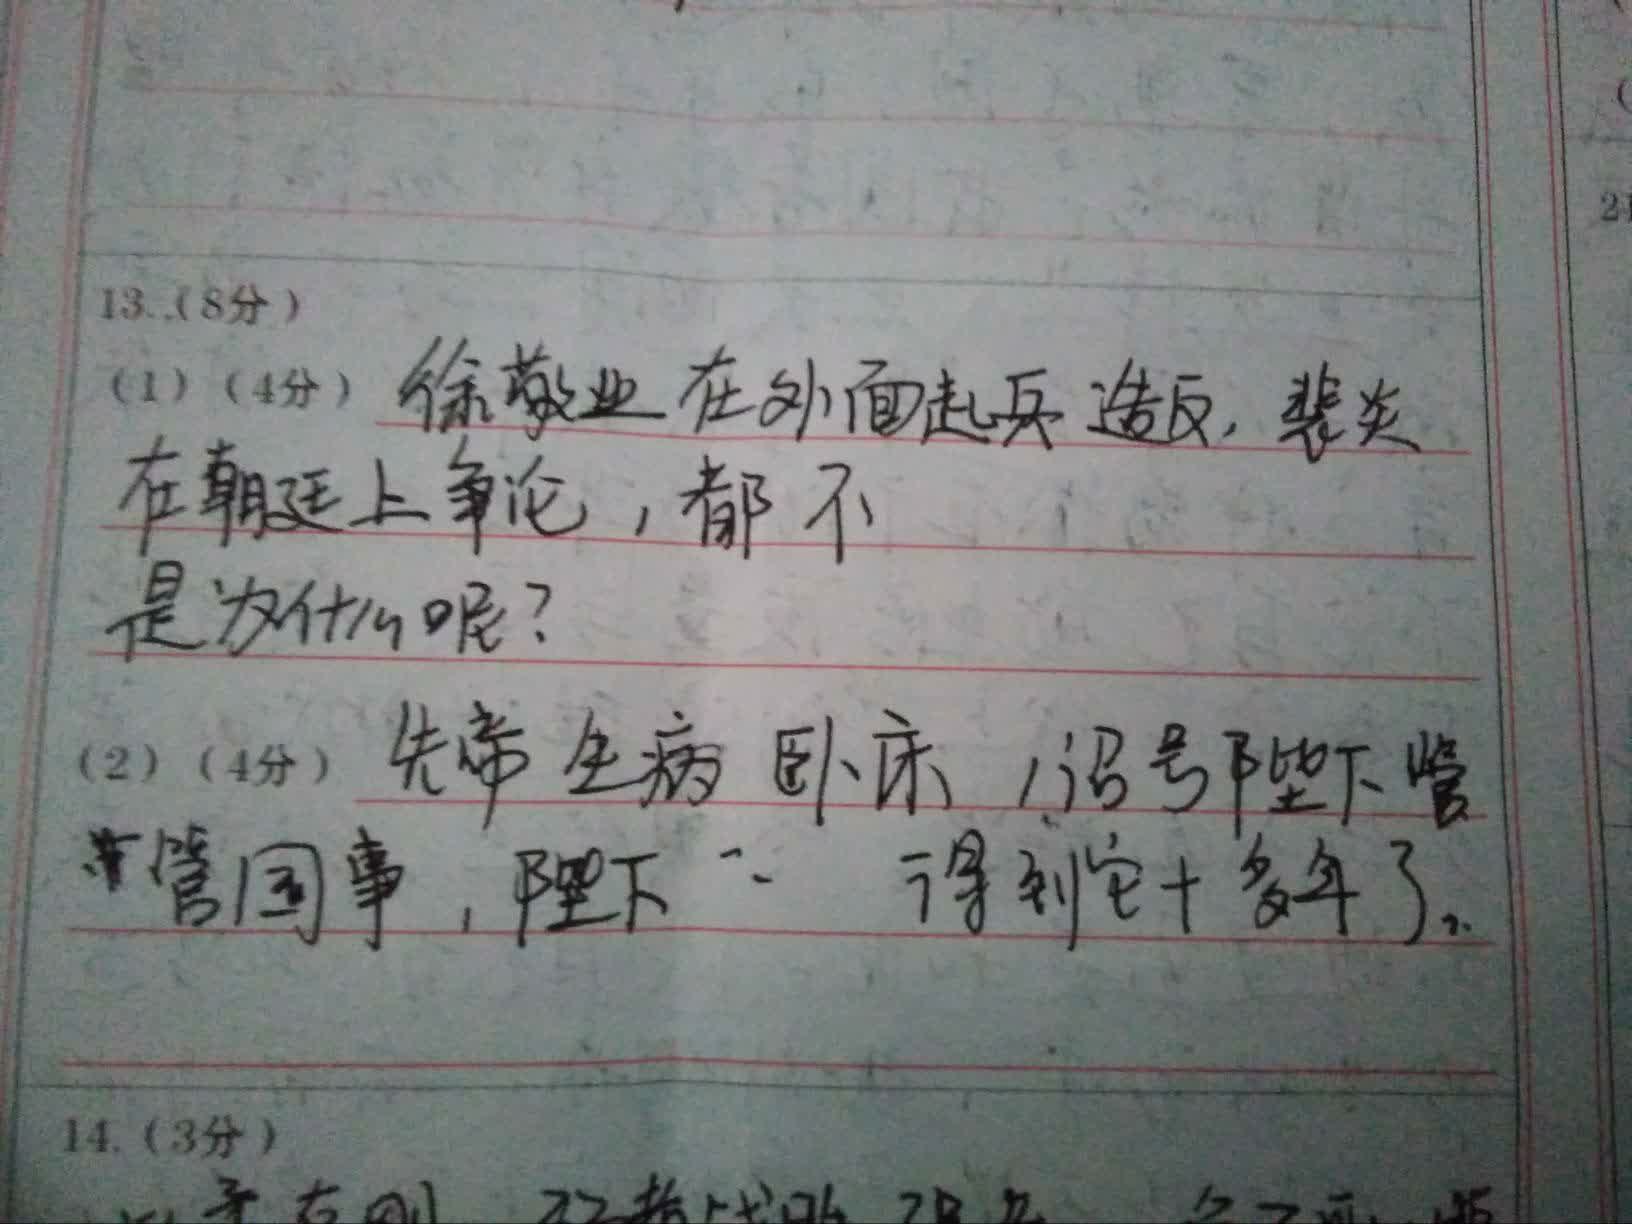 13.(8分)
(1)(4分) 徐敬业在外面起兵造反,裴炎
在朝廷上争论,都不
是为什么呢?
(2)(4分) 先帝生病卧床,诏号陛下管
管国事,陛下 得到它十多年了。
14.(3分)
21